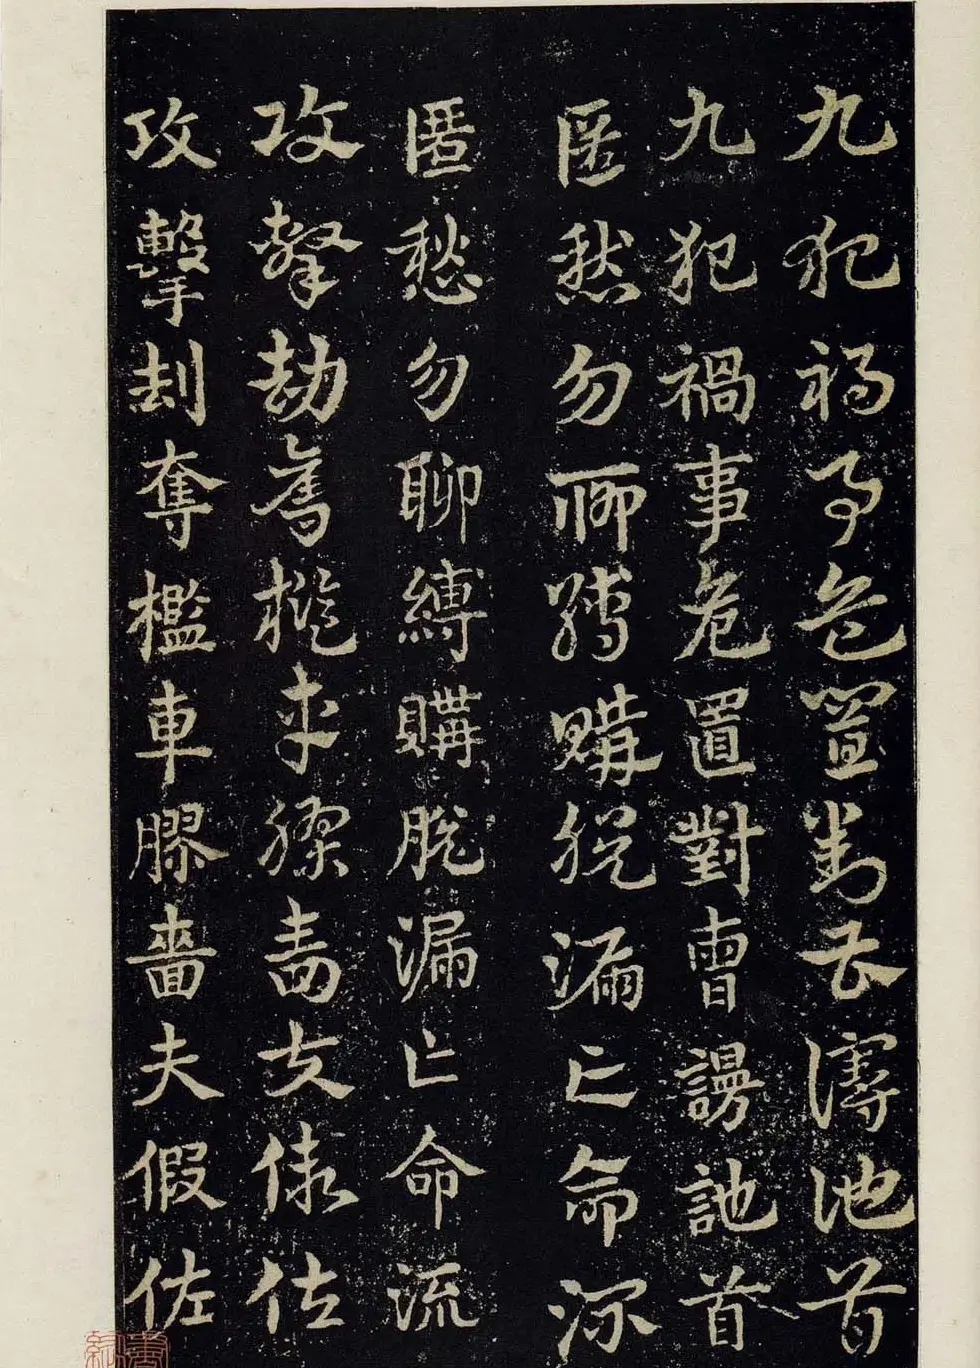 九犯禍事危置對曹謾訑首
九犯禍事危置對曹謾訑首
匿愁勿聊縛購脫漏亡命流
匿愁勿聊縛購脫漏亡命流
攻擊劫奪檻車膠嗇夫假佐
攻擊刦奪檻車膠嗇夫假佐